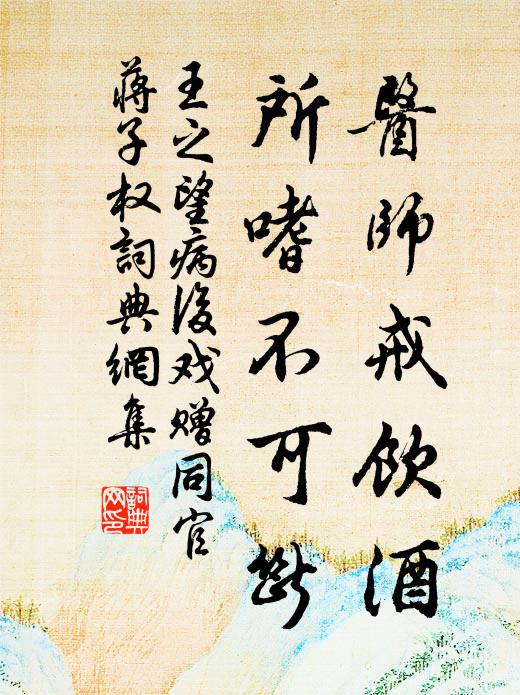 醫師戒飲酒
所嗜不可斷
王之望病後戏赠同官
蔣子权詞典網集
詞典网印